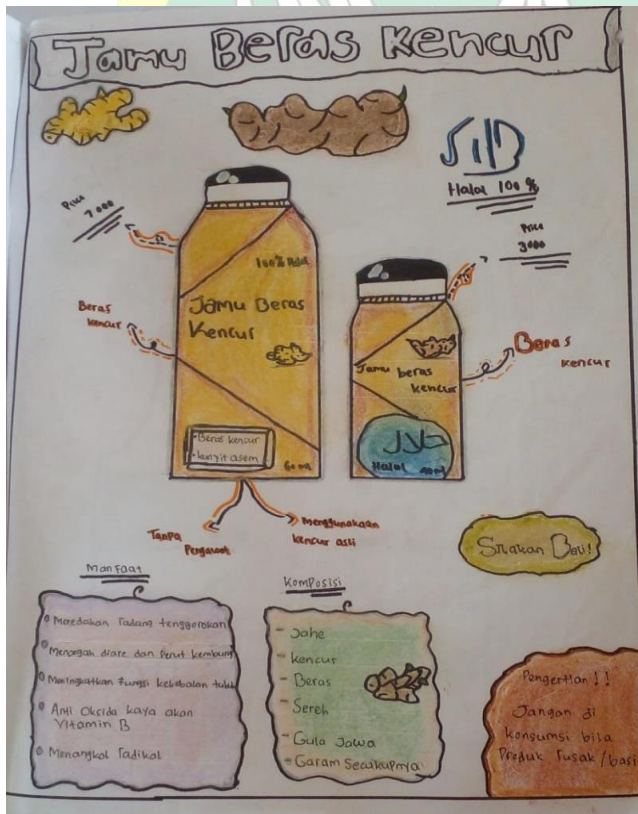 Jamu Beras Kencur
حلال
Halal 100 %
Price
7000
Price
3000
100% Halal
Jamu Beras
Kencur
Beras
kencur
Jamu beras
kencur
Beras
kencur
• Beras kencur
• kunyit asem
60 ml
حلال
Halal
Tanpa
Pengawet
Menggunakaan
kencur asli
Silakan Beli!
Manfaat
Meredakan radang tenggorokan
Mencegah diare dan Perut kembung
Meningkatkan Fungsi kekebalan tubuh
Anti Oksida kaya akan
Vitamin B
Menangkal radikal
Komposisi
- Jahe
- kencur
- Beras
- Sereh
- Gula Jawa
- Garam Secukupnya
Pengertian !!
Jangan di
konsumsi bila
Produk rusak / basi